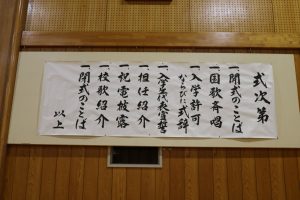 式次第
一開式のことば
一国歌斉唱
一入学許可
ならびに式辞
一入学生代表宣誓
一担任紹介
一祝電披露
一校歌紹介
一閉式のことば
以上